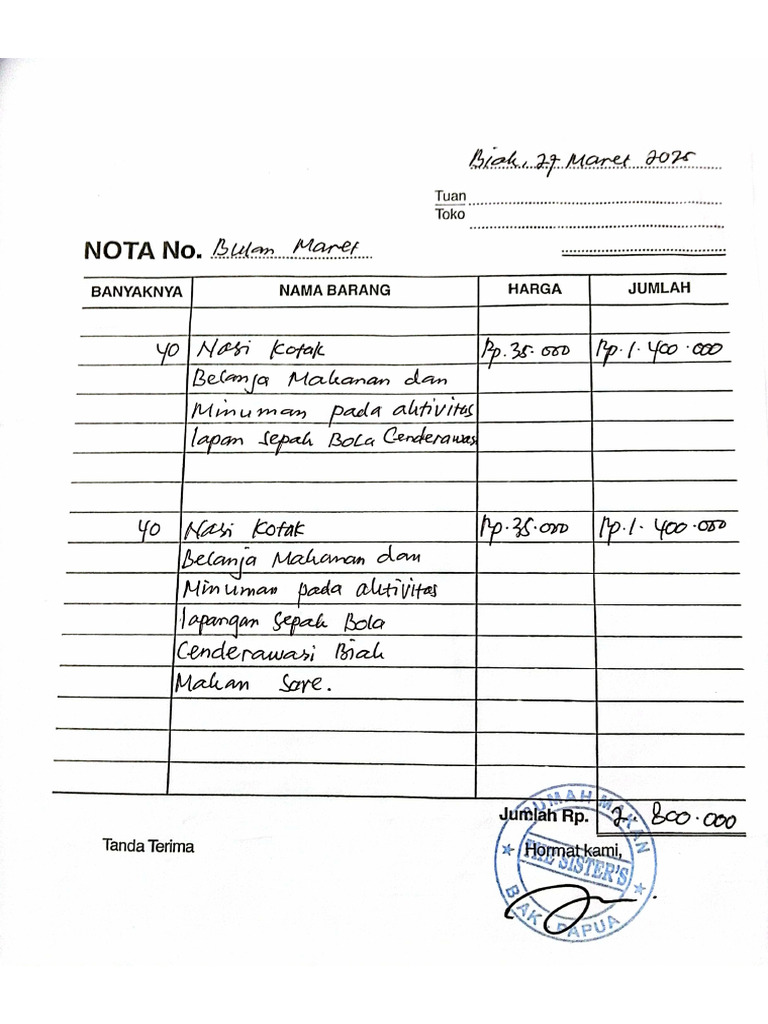 Biak, 27 Maret 2025
Tuan
Toko
NOTA No. Bulan Maret
BANYAKNYA NAMA BARANG HARGA JUMLAH
40 Nasi Kotak Rp. 35.000 Rp. 1.400.000
Belanja Makanan dan
Minuman pada aktivitas
lapan Sepak Bola Cenderawasi
40 Nasi Kotak Rp. 35.000 Rp. 1.400.000
Belanja Makanan dan
Minuman pada aktivitas
lapangan Sepak Bola
Cenderawasi Biak
Makan Sore.
Jumlah Rp. 2.800.000
Tanda Terima Hormat kami,
RUMAH MAKAN
THE SISTER'S
BIAK PAPUA